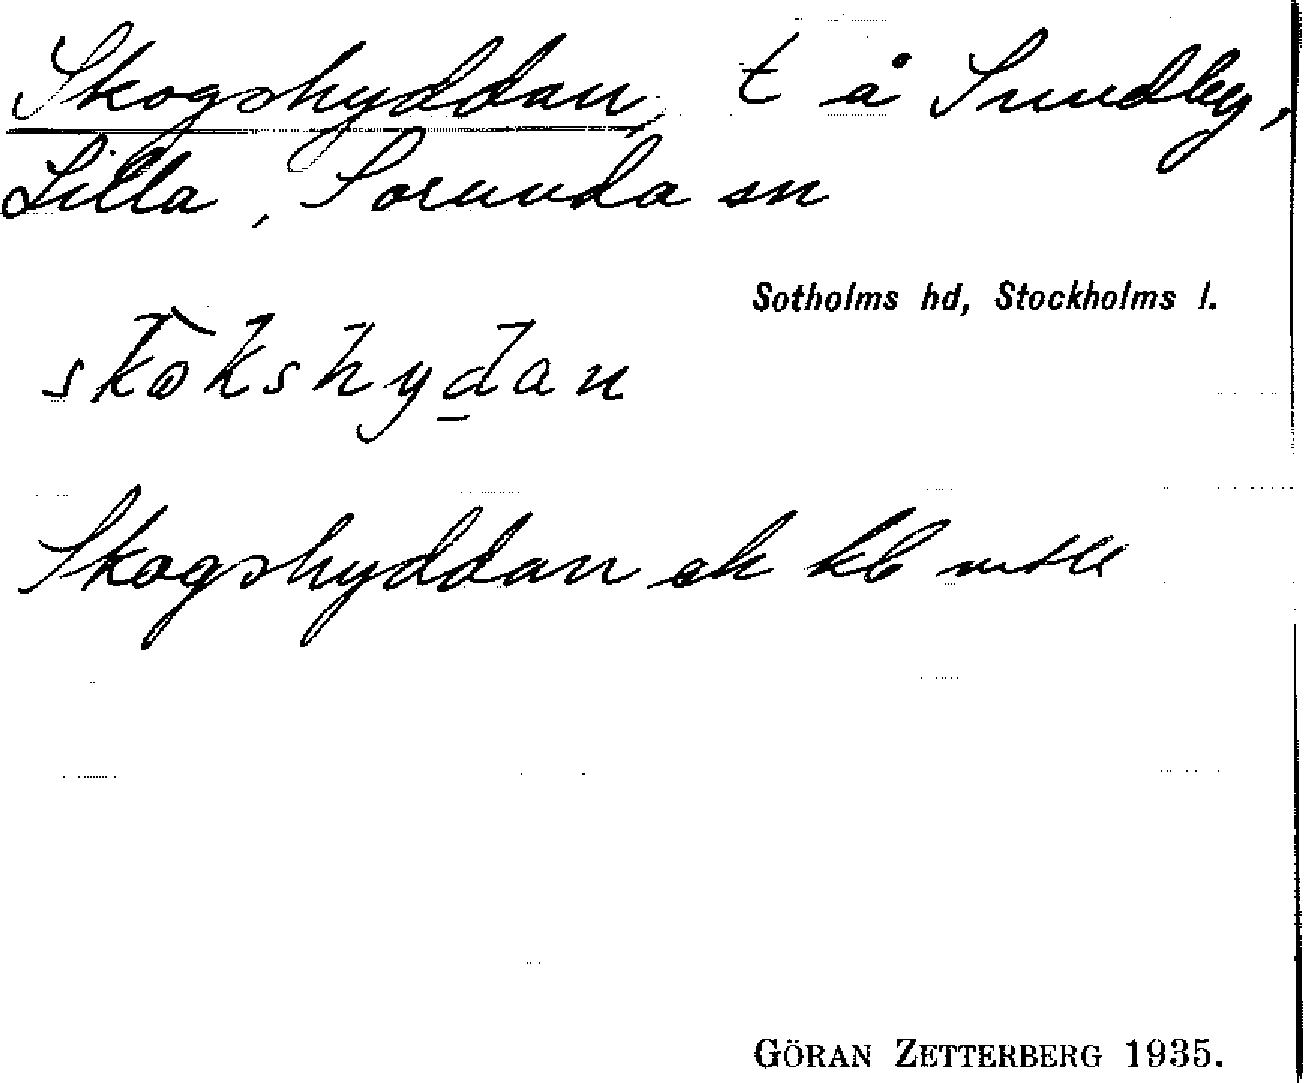 Skogshyddan, t å Sundby,
Lilla, Sorunda sn
Sotholms hd, Stockholms l.
skokshydan
Skogshyddan ek kb
GÖRAN ZETTERBERG 1935.